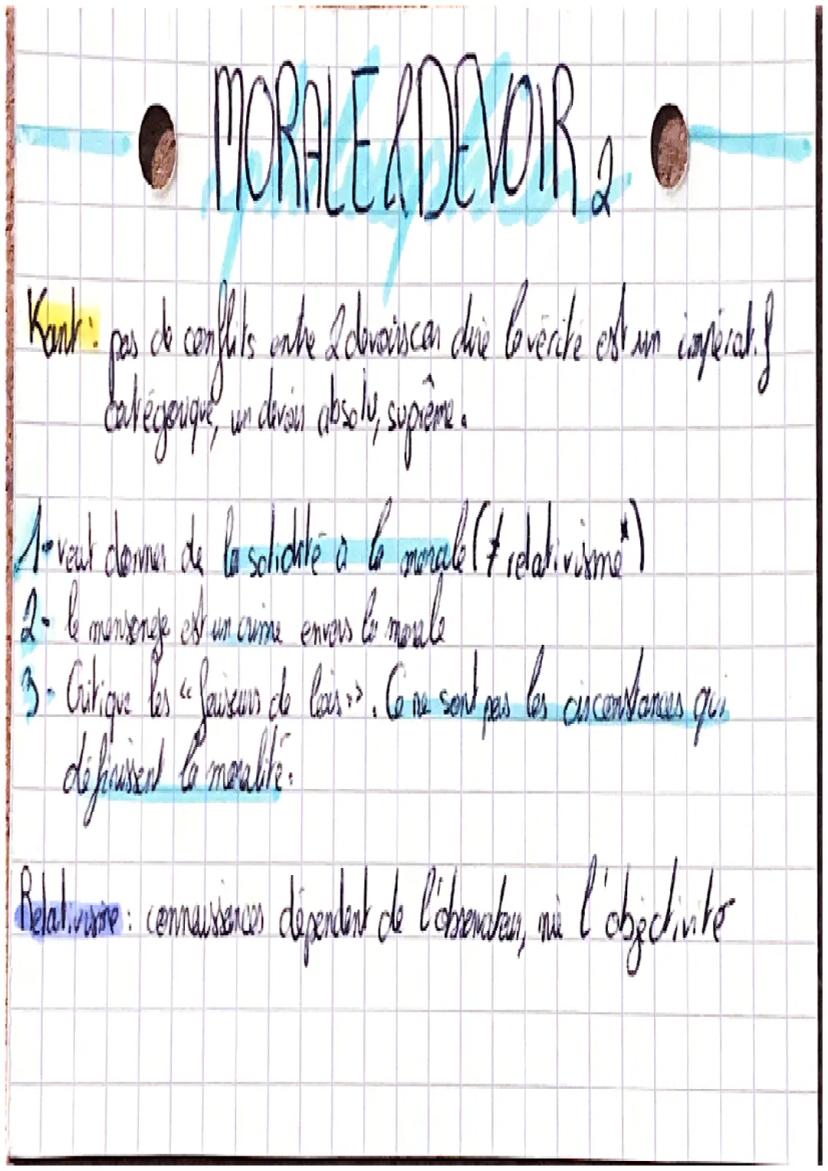 MORALE & DEVOIR 2
Kant : pas de conflits entre 2 devoirs car dire la vérité est un impératif
catégorique, un devoir absolu, suprême.
1- veut donner de la solidité à la morale (≠ relativisme*)
2- le mensonge est un crime envers la morale
3- Critique les "faiseurs de lois". Ce ne sont pas les circonstances qui
définissent la moralité.
Relativisme : connaissances dépendent de l'observateur, nie l'objectivité